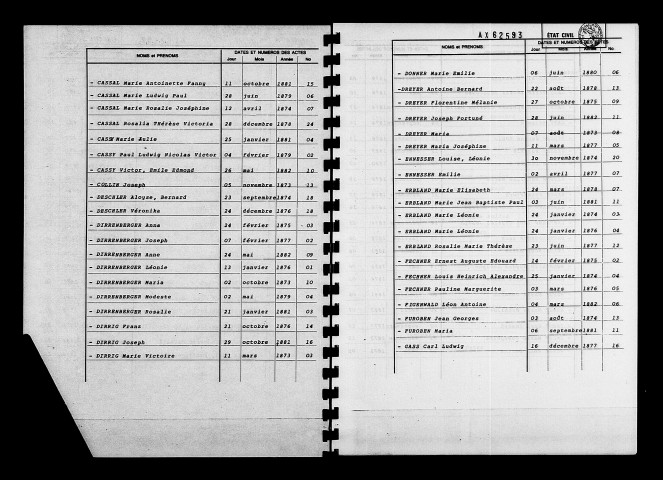 NOMS et PRENOMS DATES ET NUMEROS DES ACTES
Jour Mois Année No
- CASSAL Marie Antoinette Fanny 11 octobre 1881 15
- CASSAL Marie Ludwig Paul 28 juin 1879 06
- CASSAL Marie Rosalie Joséphine 12 avril 1874 07
- CASSAL Rosalia Thérèse Victoria 28 décembre 1878 24
- CASSY Marie Julie 25 janvier 1881 04
- CASSY Paul Ludwig Nicolas Victor 04 février 1879 02
- CASSY Victor, Emile Edmond 26 mai 1882 10
- COLLIN Joseph 05 novembre 1873 13
- DESCHLER Aloyse, Bernard 23 septembre 1874 18
- DESCHLER Véronika 24 décembre 1876 18
- DIRRENBERGER Anna 24 février 1875 03
- DIRRENBERGER Joseph 07 février 1877 02
- DIRRENBERGER Anne 24 mai 1882 09
- DIRRENBERGER Léonie 13 janvier 1876 01
- DIRRENBERGER Maria 02 octobre 1873 10
- DIRRENBERGER Modeste 02 mai 1879 04
- DIRRENBERGER Rosalie 21 janvier 1881 03
- DIRRIG Franz 21 octobre 1876 14
- DIRRIG Joseph 29 octobre 1881 16
- DIRRIG Marie Victoire 11 mars 1873 03
AX62593 ÉTAT CIVIL
NOMS et PRENOMS DATES ET NUMEROS DES ACTES
Jour Mois Année No
- DONNER Marie Emilie 06 juin 1880 06
-DREYER Antoine Bernard 22 août 1878 13
- DREYER Florentine Mélanie 27 octobre 1875 09
- DREYER Joseph Fortuné 28 juin 1882 11
- DREYER Maria 07 août 1873 08
- DREYER Maria Joséphine 11 mars 1877 05
- EHNESSER Louise, Léonie 30 novembre 1874 20
- EHNESSER Emilie 02 avril 1877 07
- ERBLAND Marie Elisabeth 24 mars 1878 07
- ERBLAND Marie Jean Baptiste Paul 03 juin 1881 11
- ERBLAND Marie Léonie 24 janvier 1874 03
- ERBLAND Marie Léonie 24 janvier 1876 04
- ERBLAND Rosalie Marie Thérèse 23 juin 1877 12
- FECHNER Ernest Auguste Edouard 14 février 1875 02
- FECHNER Louis Heinrich Alexandre 25 janvier 1874 04
- FECHNER Pauline Marguerite 03 mars 1876 05
- FIGENWALD Léon Antoine 04 mars 1882 06
- FUROBEN Jean Georges 03 août 1874 13
- FUROBEN Maria 06 septembre 1881 11
- GASS Carl Ludwig 16 décembre 1877 16